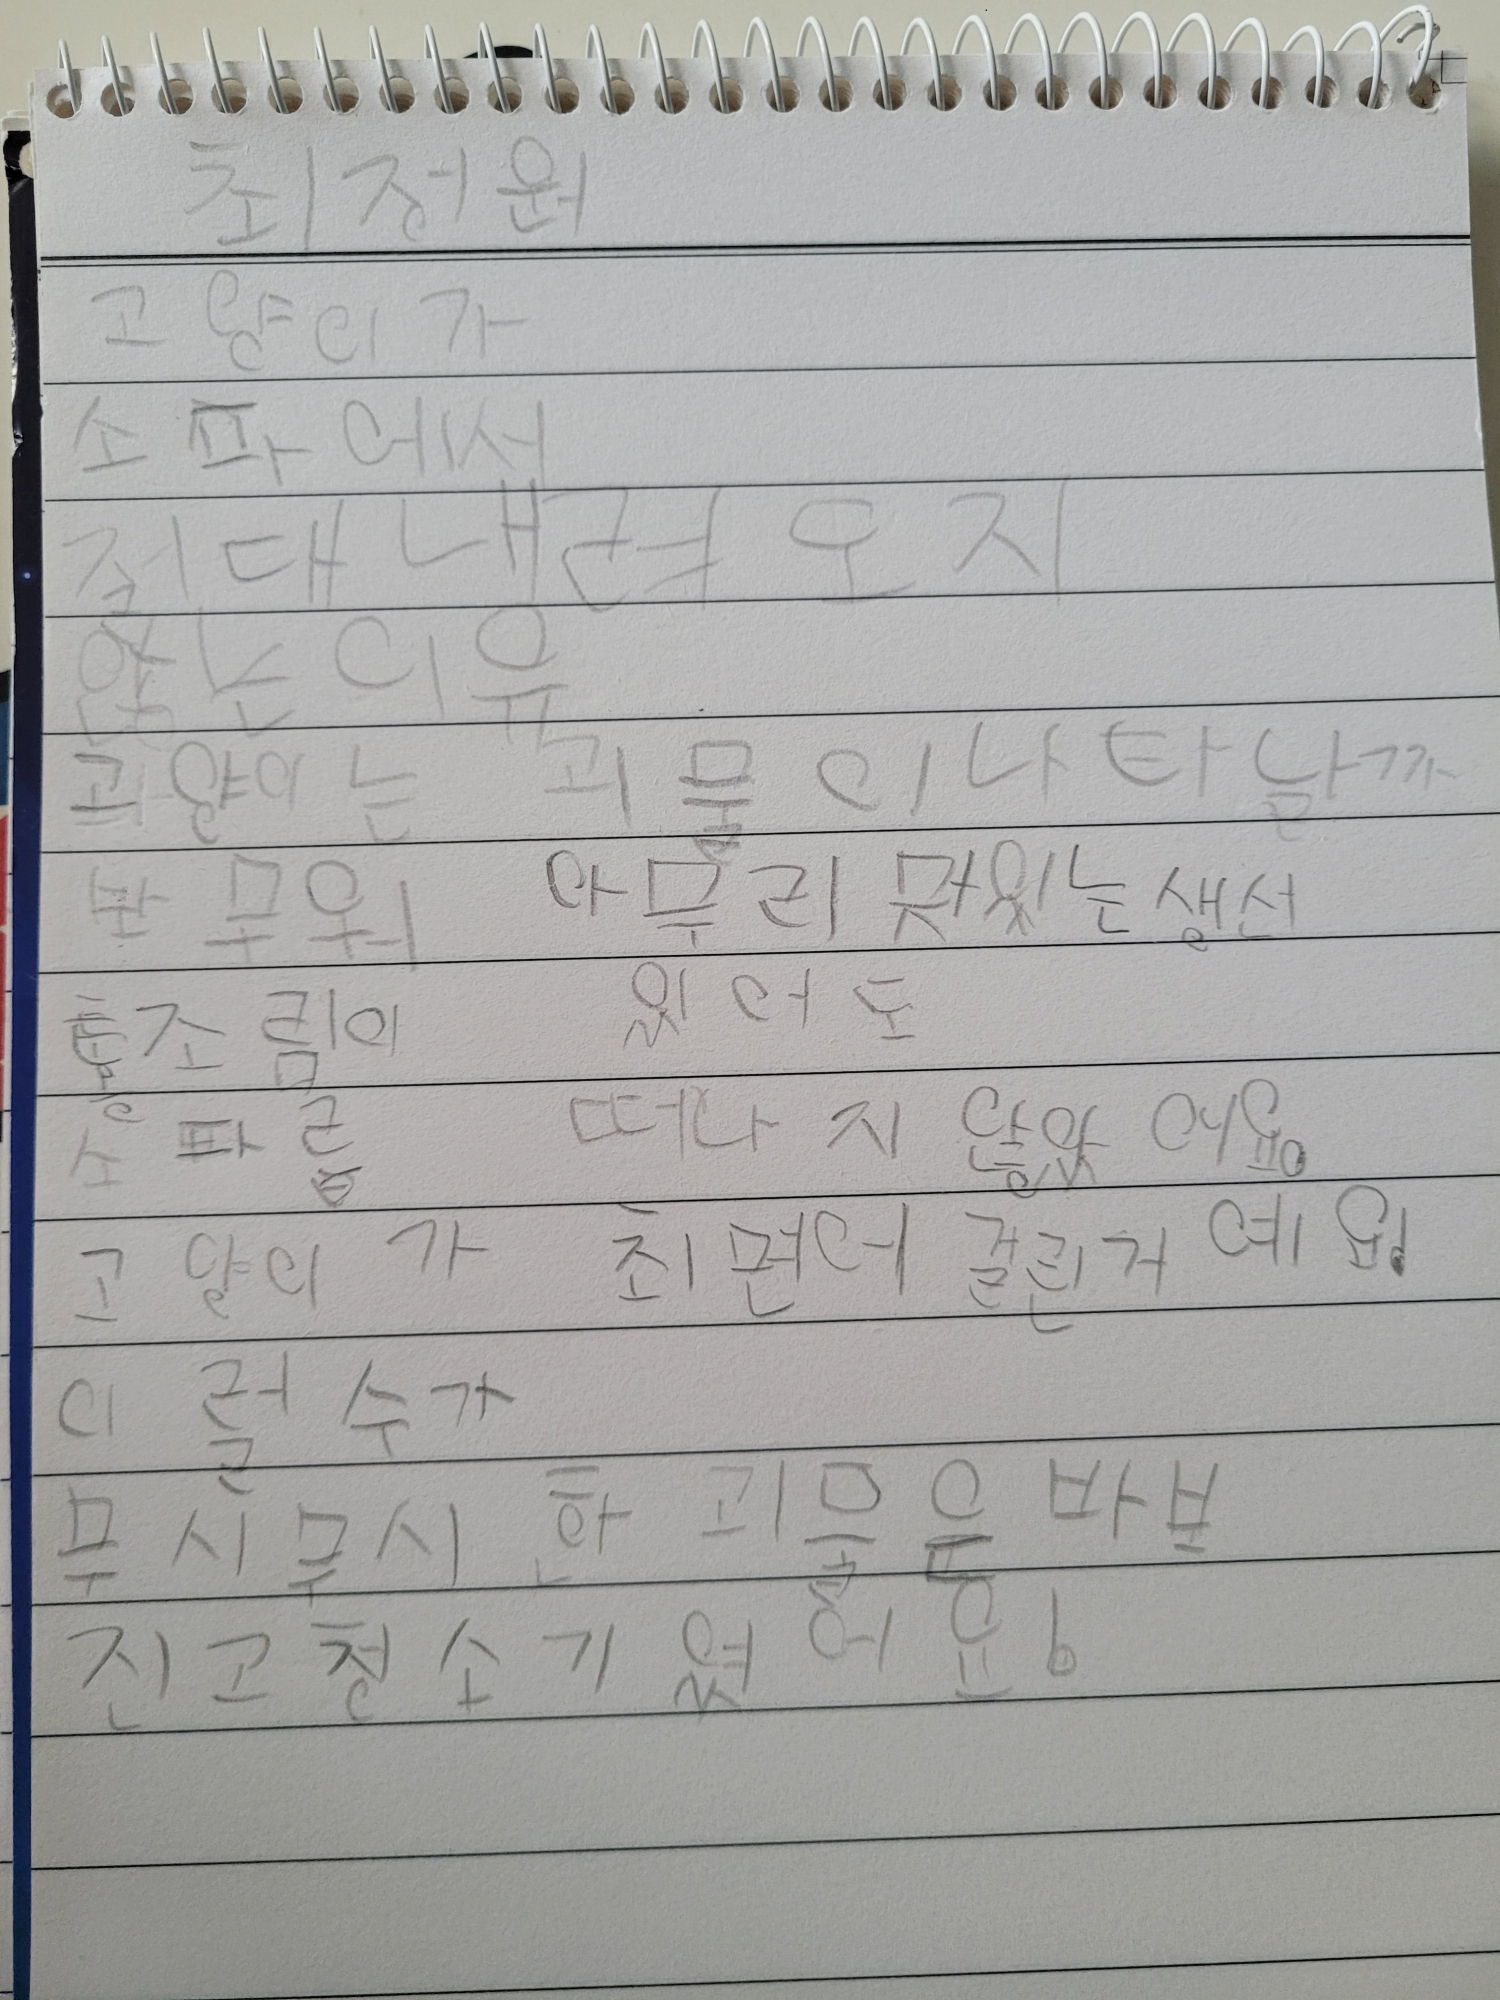 최정원
고양이가
소파에서
절대 내려오지
않는 이유
고양이는 괴물이 나타날까
봐 무워 아무리 맛있는 생선
통조림이 있어도
소파를 떠나지 않았어요.
고양이가 최면에 걸린거예요.
이럴수가
무시무시한 괴물은 바보
진고청소기였어요!